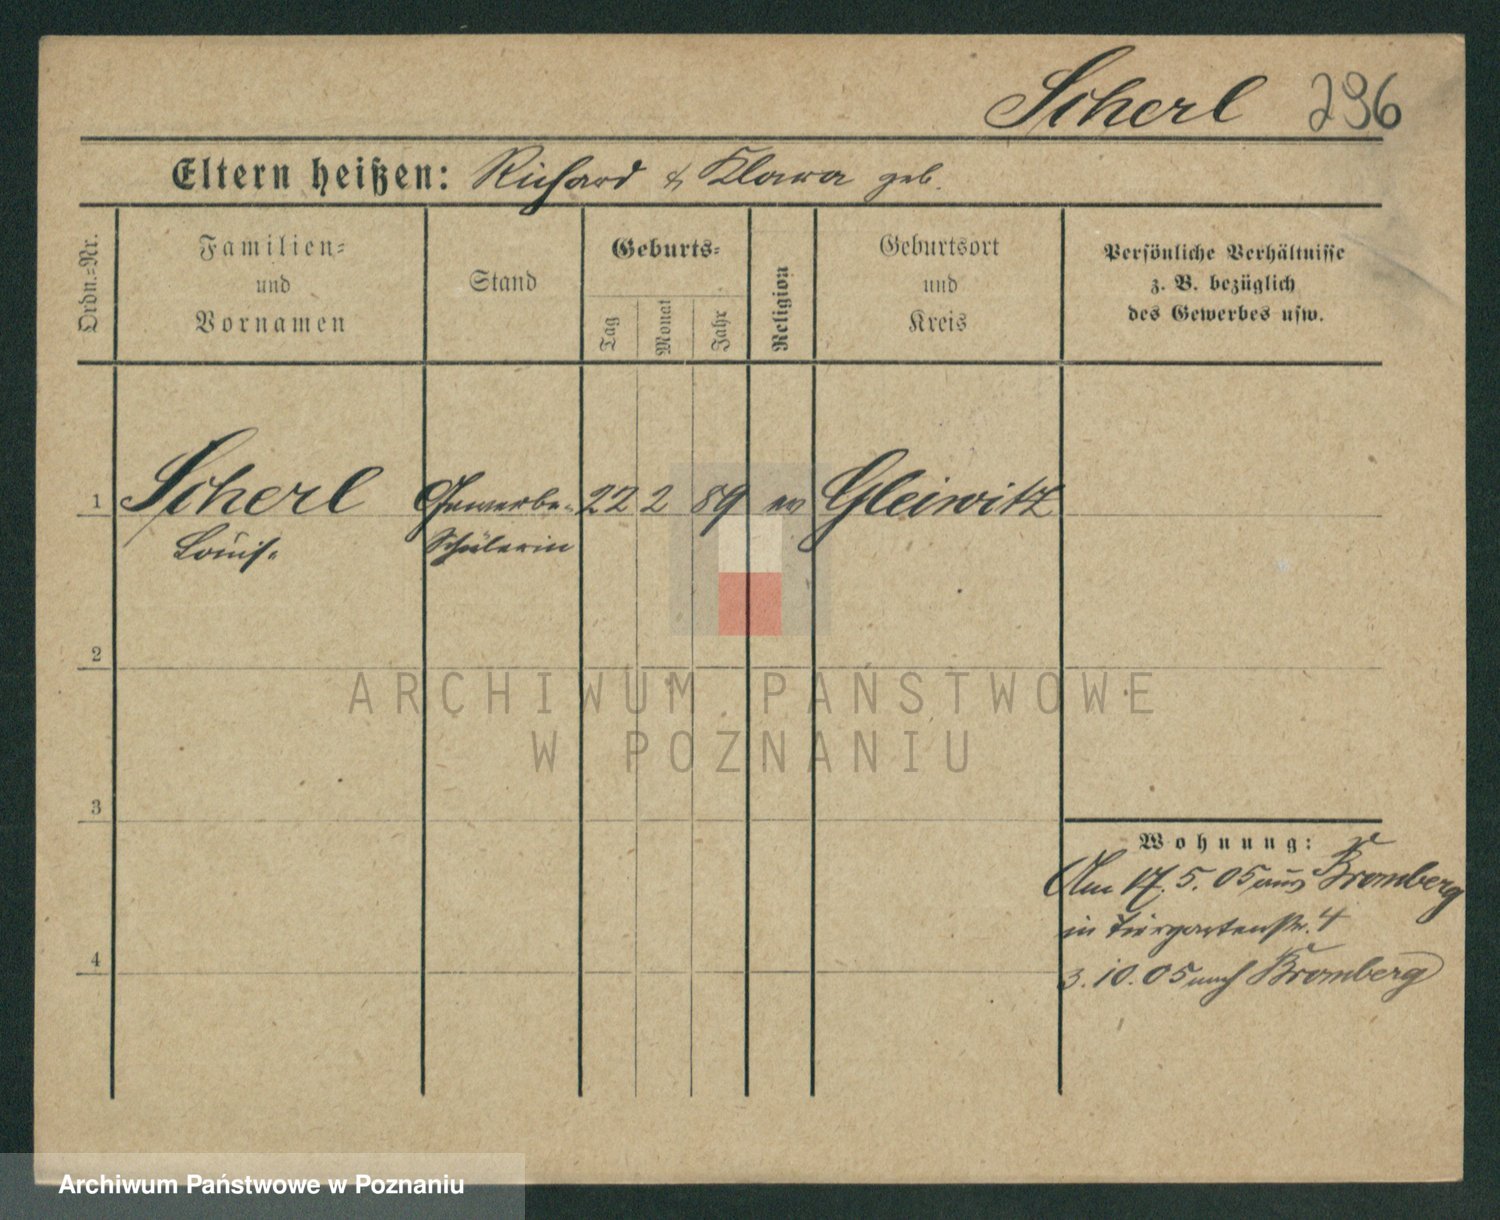 Scherl 296
Eltern heißen: Richard & Klara geb.
Ordn.=Nr.
Familien=
und
Vornamen
Stand
Geburts=
Tag
Monat
Jahr
Religion
Geburtsort
und
Kreis
Persönliche Verhältnisse
z. B. bezüglich
des Gewerbes usw.
1 Scherl Gewerbe- 22 2 89 ev Gleiwitz
Louis. Schülerin
2
ARCHIWUM PAŃSTWOWE
W POZNANIU
3
Wohnung:
Am 17. 5. 05 aus Bromberg
in Tiergartenstr. 4
4
3. 10. 05 nach Bromberg
Archiwum Państwowe w Poznaniu